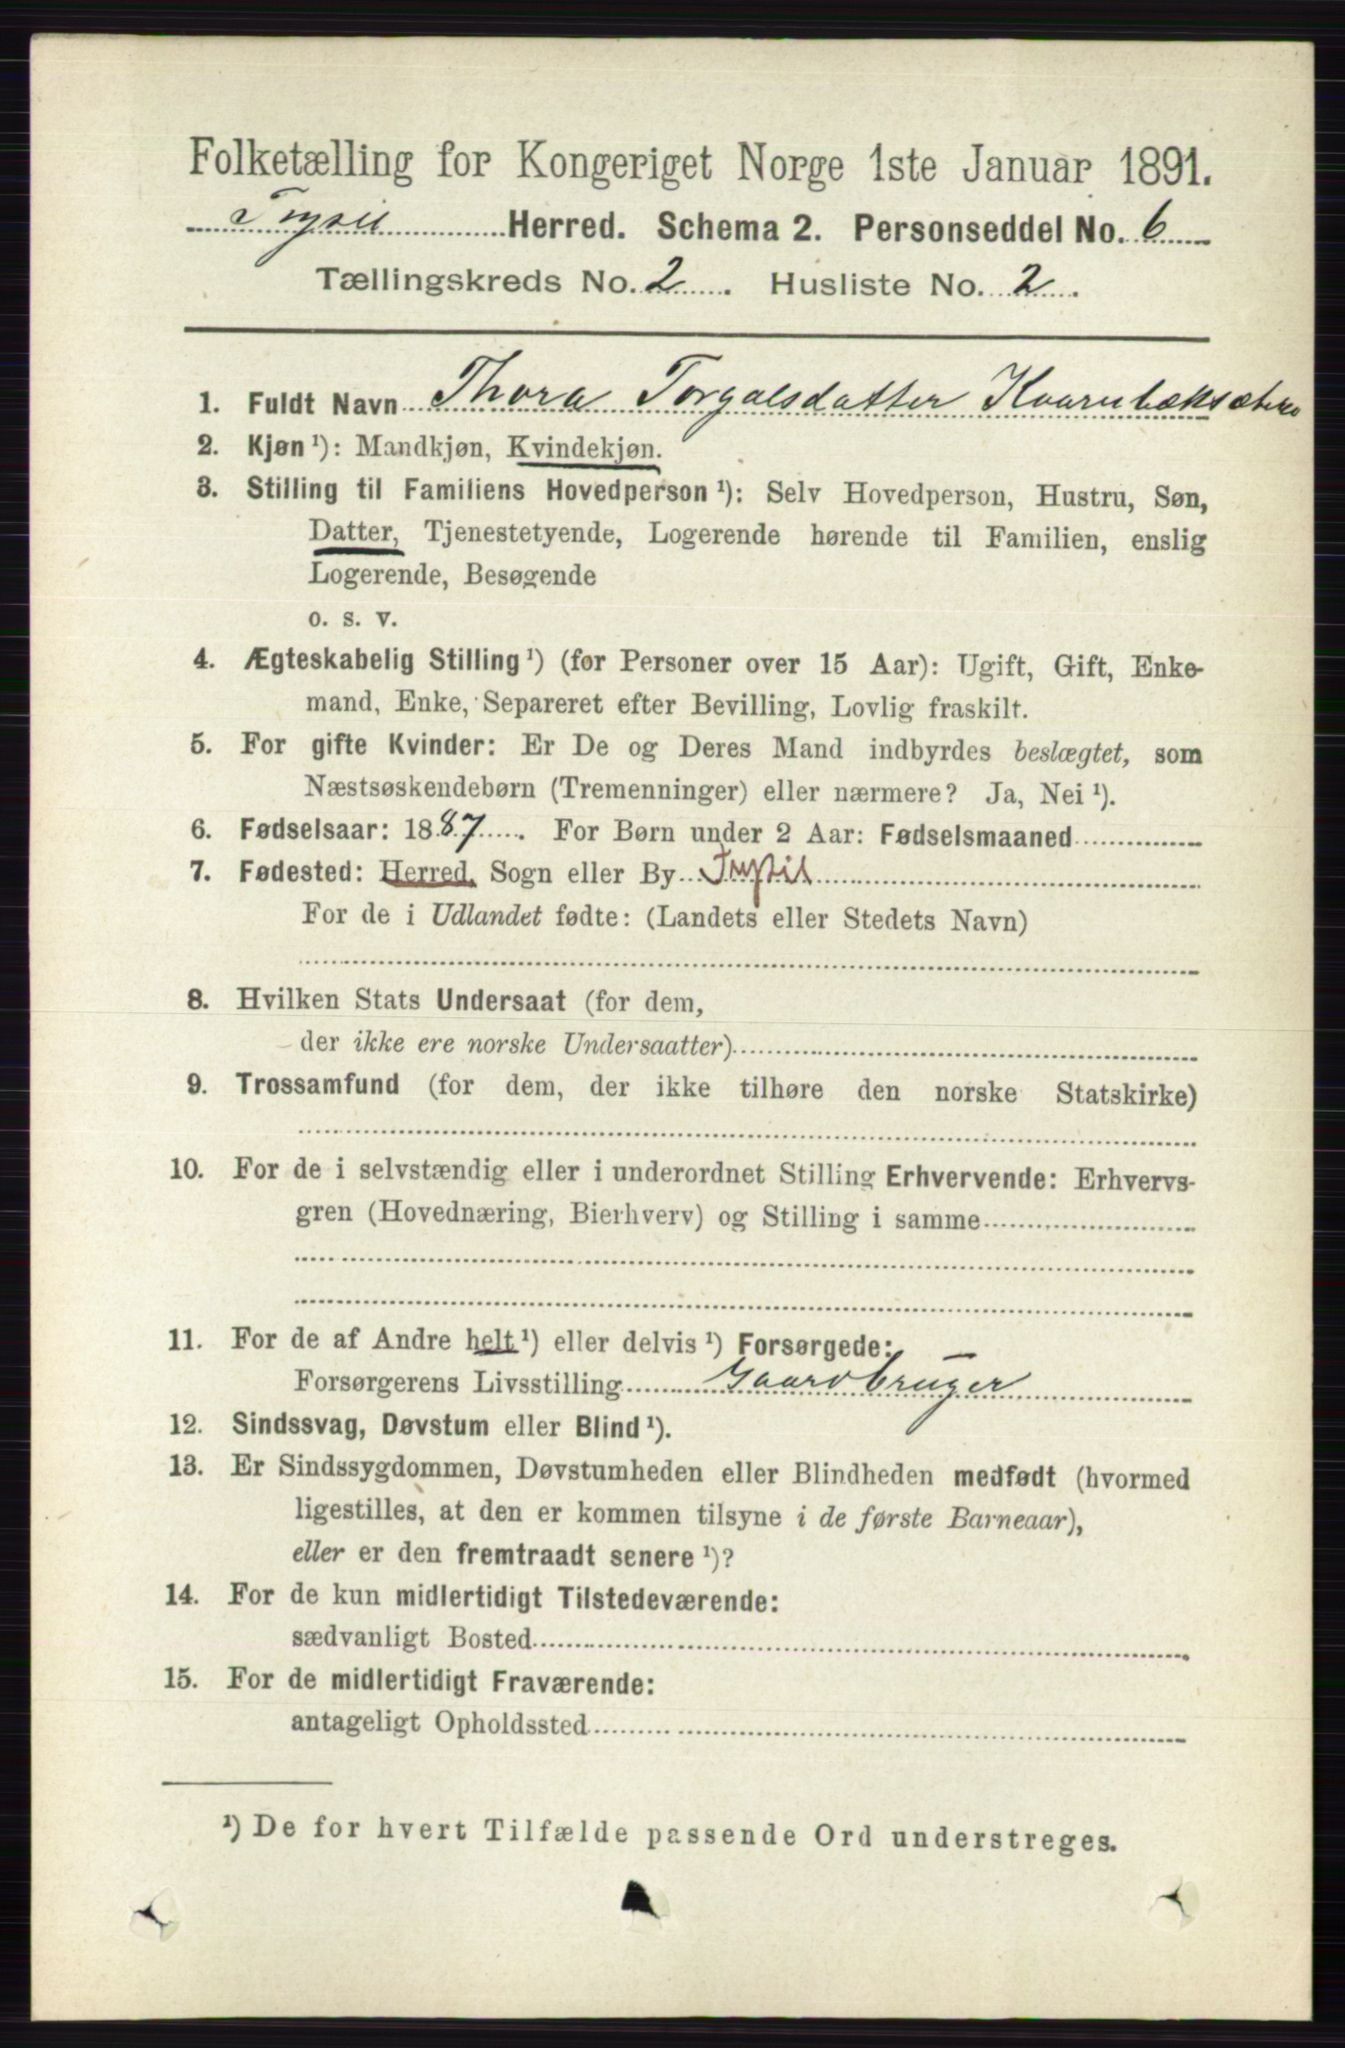 Folketælling for Kongeriget Norge 1ste Januar 1891.
Trysil Herred. Schema 2. Personseddel No. 6
Tællingskreds No. 2. Husliste No. 2.
1. Fuldt Navn Thora Torgalsdatter Kvarnbæksæteren
2. Kjøn ¹): Mandkjøn, Kvindekjøn.
3. Stilling til Familiens Hovedperson ¹): Selv Hovedperson, Hustru, Søn,
Datter, Tjenestetyende, Logerende hørende til Familien, enslig
Logerende, Besøgende
o. s. v.
4. Ægteskabelig Stilling ¹) (for Personer over 15 Aar): Ugift, Gift, Enke-
mand, Enke, Separeret efter Bevilling, Lovlig fraskilt.
5. For gifte Kvinder: Er De og Deres Mand indbyrdes beslægtet, som
Næstsøskendebørn (Tremenninger) eller nærmere? Ja, Nei ¹).
6. Fødselsaar: 1887. For Børn under 2 Aar: Fødselsmaaned
7. Fødested: Herred, Sogn eller By Trysil
For de i Udlandet fødte: (Landets eller Stedets Navn)
8. Hvilken Stats Undersaat (for dem,
der ikke ere norske Undersaatter)
9. Trossamfund (for dem, der ikke tilhøre den norske Statskirke)
10. For de i selvstændig eller i underordnet Stilling Erhvervende: Erhvervs-
gren (Hovednæring, Bierhverv) og Stilling i samme
11. For de af Andre helt ¹) eller delvis ¹) Forsørgede:
Forsørgerens Livsstilling Gaardbruger
12. Sindssvag, Døvstum eller Blind ¹).
13. Er Sindssygdommen, Døvstumheden eller Blindheden medfødt (hvormed
ligestilles, at den er kommen tilsyne i de første Barneaar),
eller er den fremtraadt senere ¹)?
14. For de kun midlertidigt Tilstedeværende:
sædvanligt Bosted
15. For de midlertidigt Fraværende:
antageligt Opholdssted
¹) De for hvert Tilfælde passende Ord understreges.